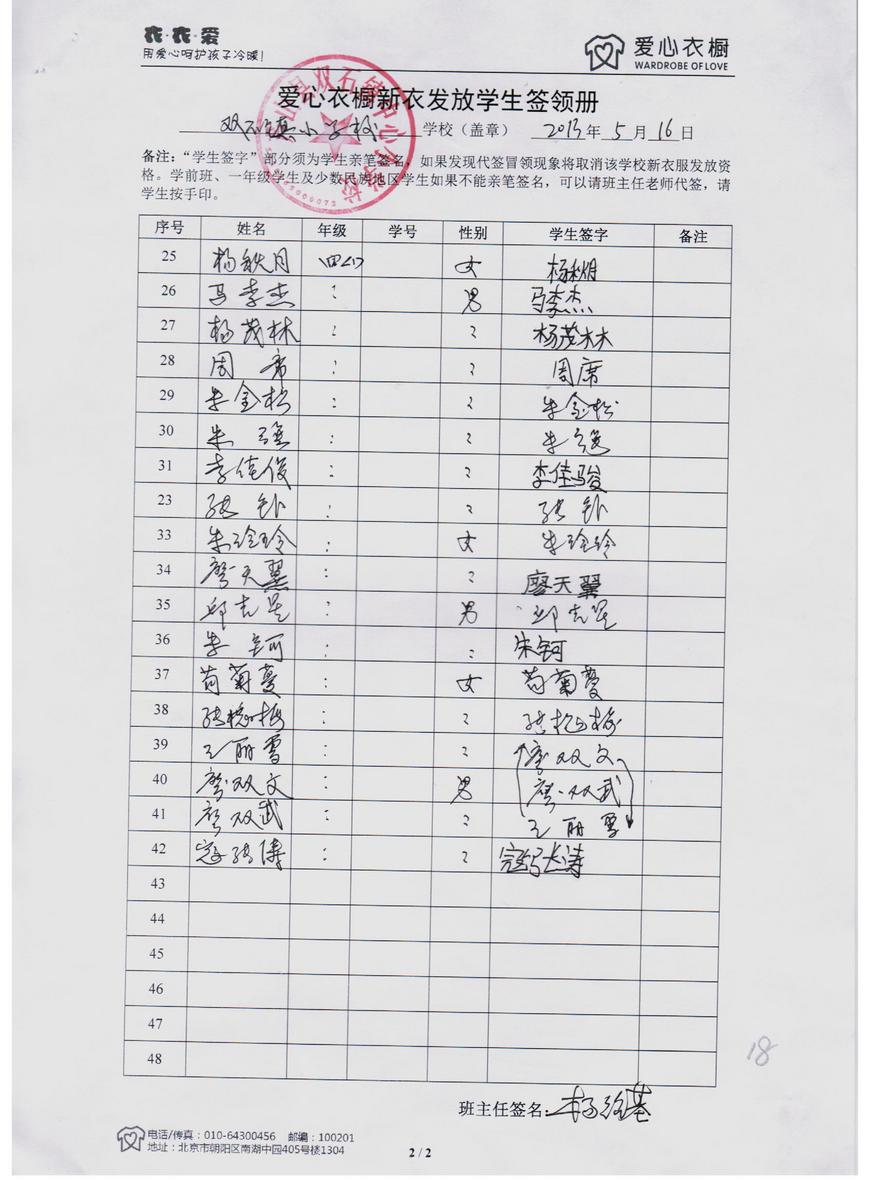 衣·衣·爱
用爱心呵护孩子冷暖!
爱心衣橱
WARDROBE OF LOVE
爱心衣橱新衣发放学生签领册
双石镇小学校 学校（盖章） 2013年 5 月 16 日
备注：“学生签字”部分须为学生亲笔签名，如果发现代签冒领现象将取消该学校新衣服发放资
格。学前班、一年级学生及少数民族地区学生如果不能亲笔签名，可以请班主任老师代签，请
学生按手印。
序号 姓名 年级 学号 性别 学生签字 备注
25 杨秋月 四 女 杨秋月
26 马李杰 : 男 马李杰
27 杨茂林 : 杨茂林
28 周席 : 周席
29 朱金松 : 朱金松
30 朱强 : 朱强
31 李佳俊 : 李佳骏
23 张 :
33 朱玲玲 : 女 朱玲玲
34 廖天翼 : 廖天翼
35 邱志星 : 男 邱志星
36 钶 : 宋钶
37 苟菊蔓 : 女 苟菊蔓
38 张 梅 : 张 梅
39 王丽雪 : 廖双文
40 廖双文 男 廖双武
41 廖双武 : 王丽雪
42 寇张涛 : 寇张涛
43
44
45
46
47
48
18
班主任签名: 杨
电话/传真：010-64300456 邮编：100201
地址：北京市朝阳区南湖中园405号楼1304
2 / 2